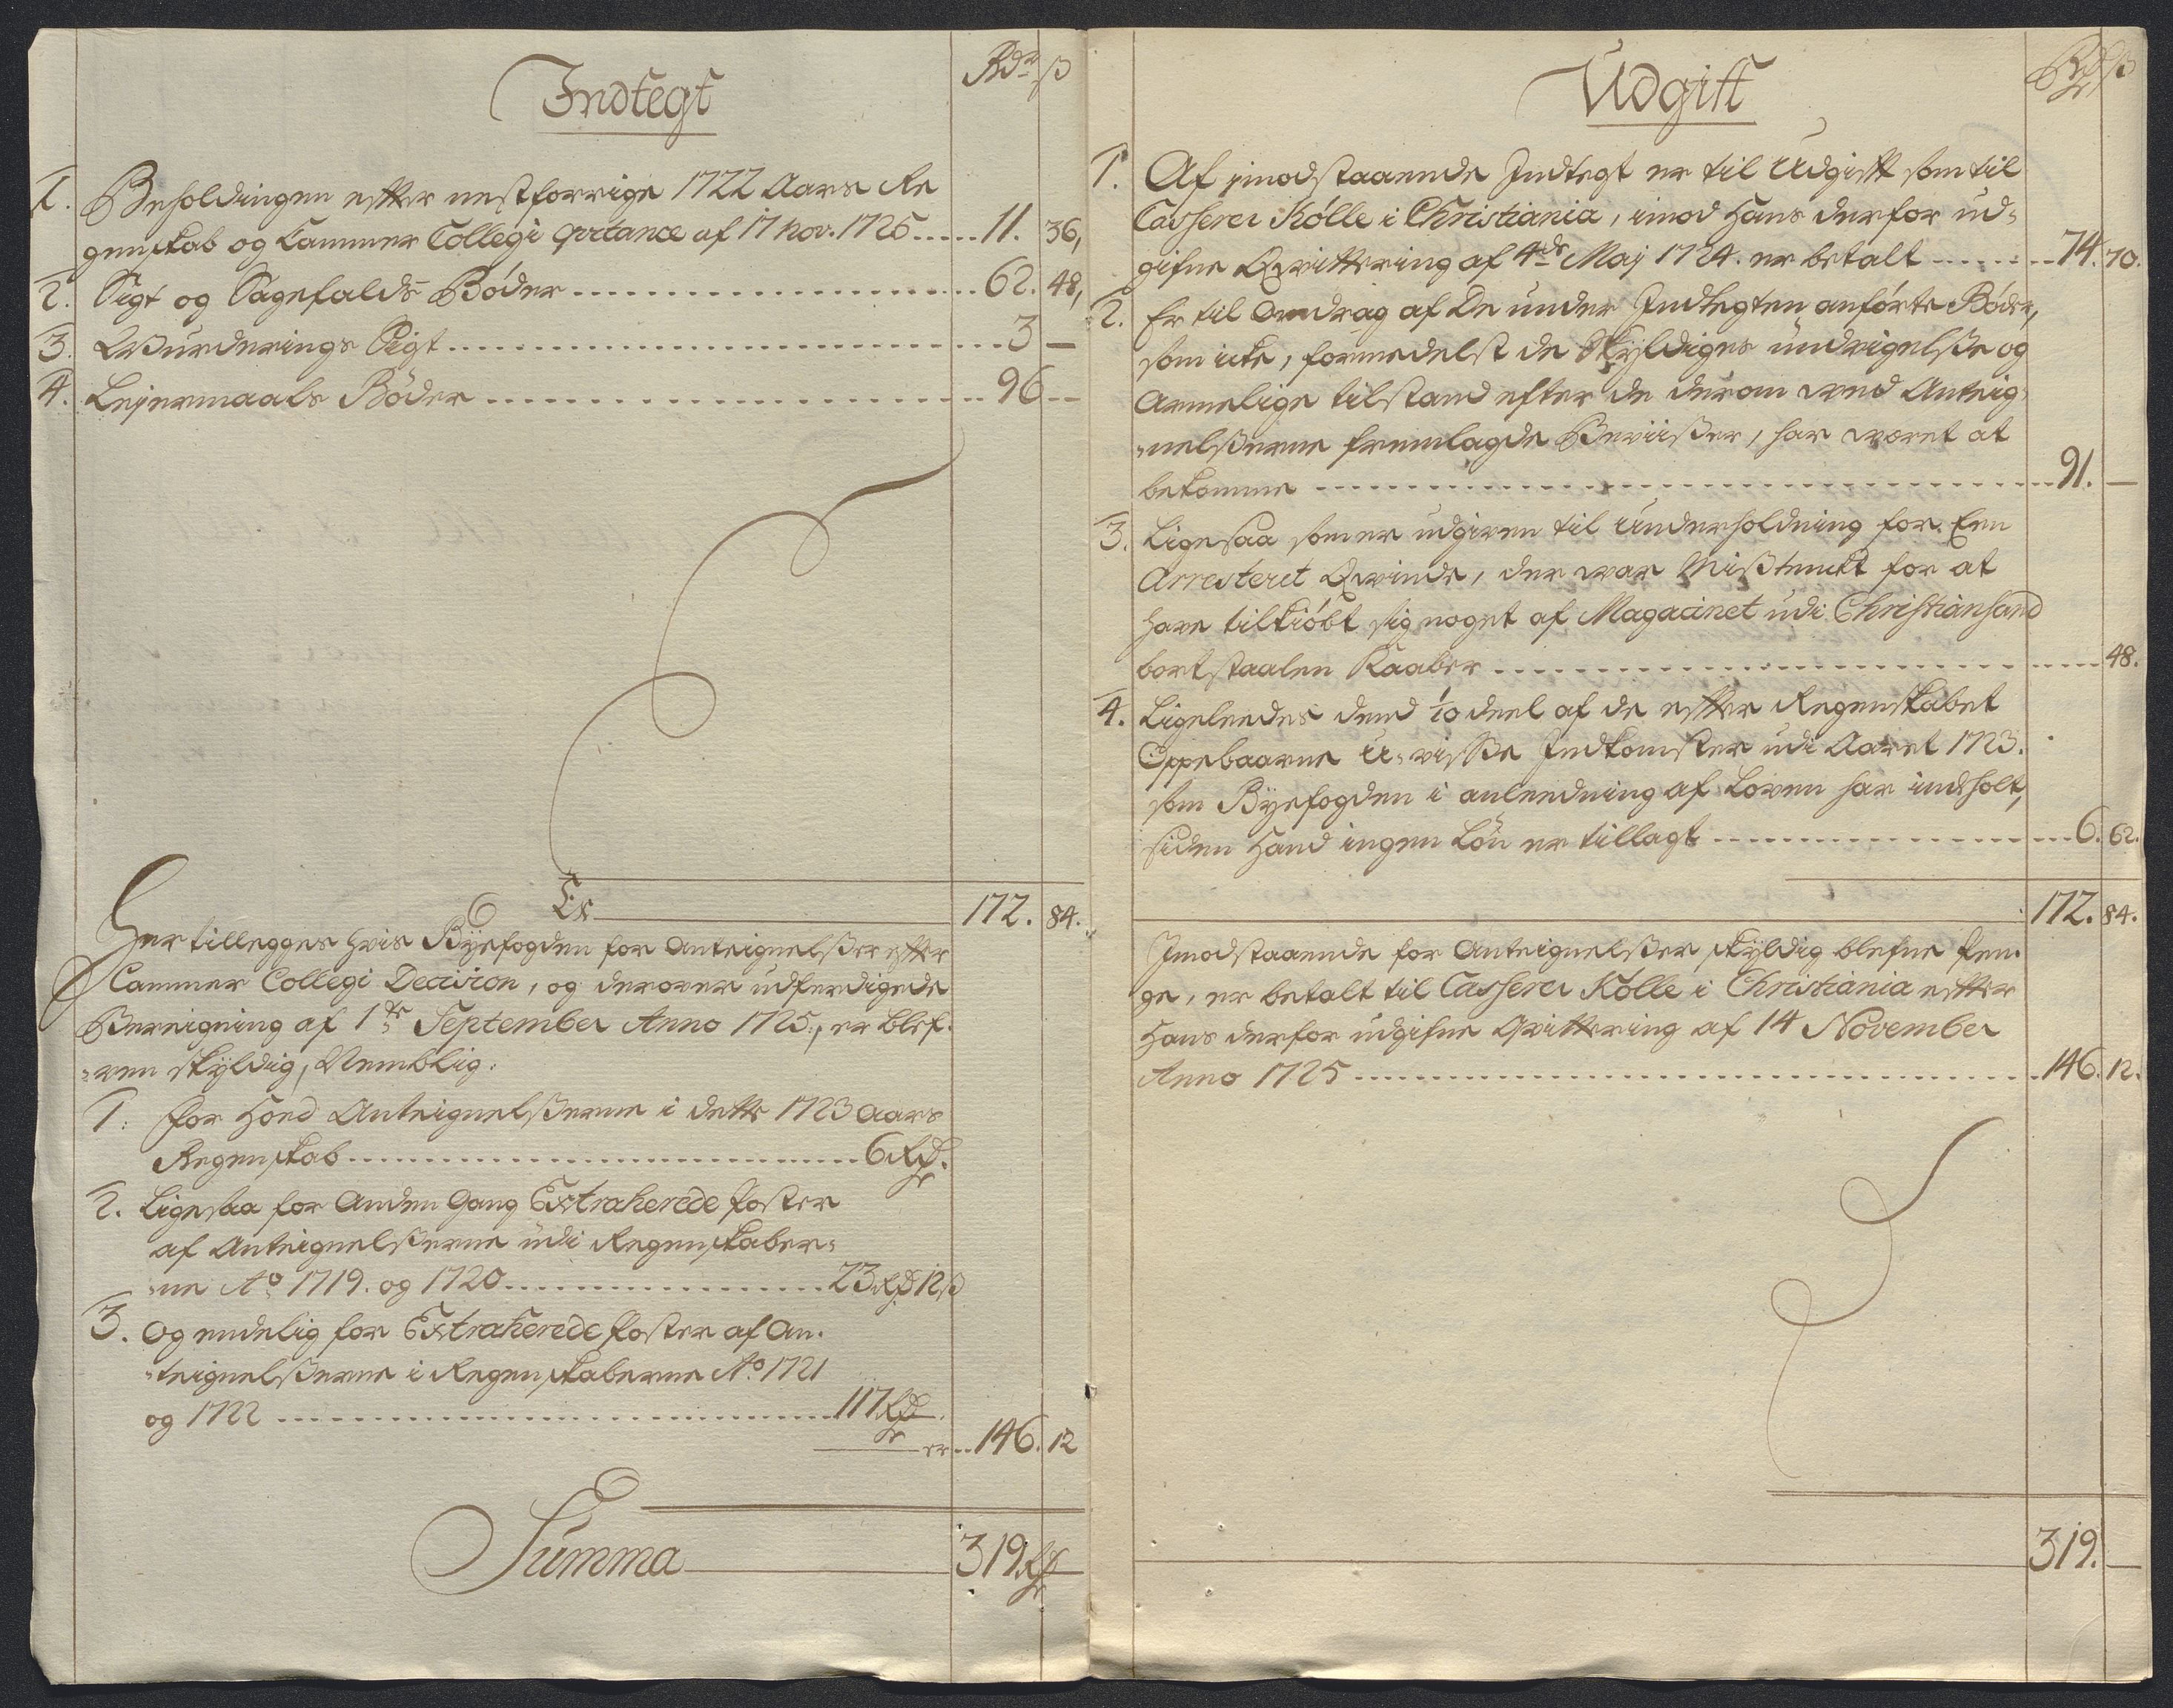 Indtegt
Rdr ß
1. Beholdingen effter nestforrige 1722 Aars Re
genskab og Cammer Collegi qvitance af 17 Nov. 1725 ..... 11. 36,
2. Sigt og Sagefalds Bøder ..... 62. 48,
3. Wurderings Sigt ..... 3 —
4. Leyermaals Bøder ..... 96 --
Er 172. 84.
Her tillegges hvis Byefogden for Anteignelsser effter
Cammer Collegi Decision, og derover udferdigede
Bereigning af 1te September Anno 1725, er blef-
-ven skyldig, Nemblig:
1: for hoed Anteignelsserne i dette 1723 Aars
Regenskab ..... 6 Rdr.
2. Ligesaa for Anden Gang Extraherede Poster
af Anteignelsserne udi Regenskaber-
-ne Ao 1719. og 1720 ..... 23 Rdr 12 ß
3. Og endelig for Extraherede Poster af An-
-teignelsserne i Regenskaberne Ao 1721
og 1722 ..... 117 Rdr.
er .. 146. 12
Summa 319 Rdr
Udgift
Rdr ß
1. Af imodstaaende Indtegt er til Udgifft som til
Casserer Kølle i Christiania, imod Hans derfor ud-
gifne Qvittering af 4de Maj 1724. er betalt ..... 74. 70.
2. Er til Andrag af De under Indtegten anførte Bøder,
som icke, formedelst de Skyldiges undvigelsse og
Armelige tilstand efter de derom ved Anteig-
-nelsserne fremlagde Beviisser, har været at
bekomme ..... 91. —
3. Ligesaa som er udgiven til Underholdning for Een
Arresteret Qvinde, der var Misstenckt for at
have tilkiøbt sig noget af Magacinet udi Christiansand
bortstaalen Kaaber ..... 48.
4. Ligeleedes dend 1/10 deel af de effter Regenskabet
Oppebaarne U-visse Indkomster udi Aaret 1723.
som Byefogden i anleedning af Loven har indholt,
siden Hand ingen Løn er tillagt ..... 6. 62.
172. 84.
Imodstaaende for Anteignelsser skyldig blefne Pen-
ge, er betalt til Casserer Kølle i Christiania effter
Hans derfor udgifne Qvittering af 14 November
Anno 1725 ..... 146. 12.
319. —